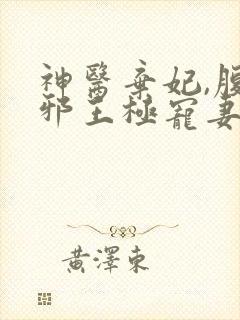 神醫棄妃,腹
邪王極寵妻
黃澤東